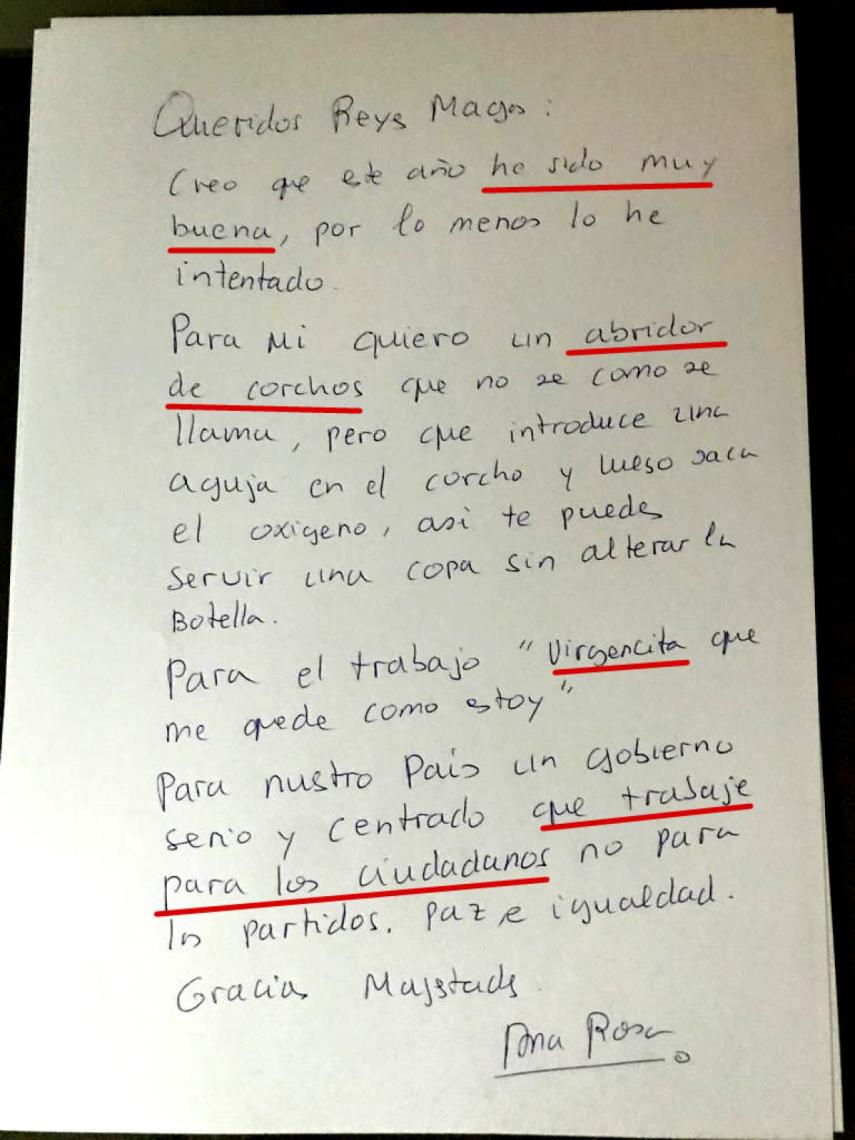 Queridos Reys Magos:
Creo que este año he sido muy
buena, por lo menos lo he
intentado.
Para Mi quiero un abridor
de corchos que no se como se
llama, pero que introduce una
aguja en el corcho y luego saca
el oxigeno, asi te puedes
servir una copa sin alterar la
Botella.
Para el trabajo "Virgencita que
me quede como estoy"
Para nustro País un gobierno
serio y centrado que trabaje
para los ciudadanos no para
los partidos. Paz e igualdad.
Gracias Majstads.
Ana Rosa